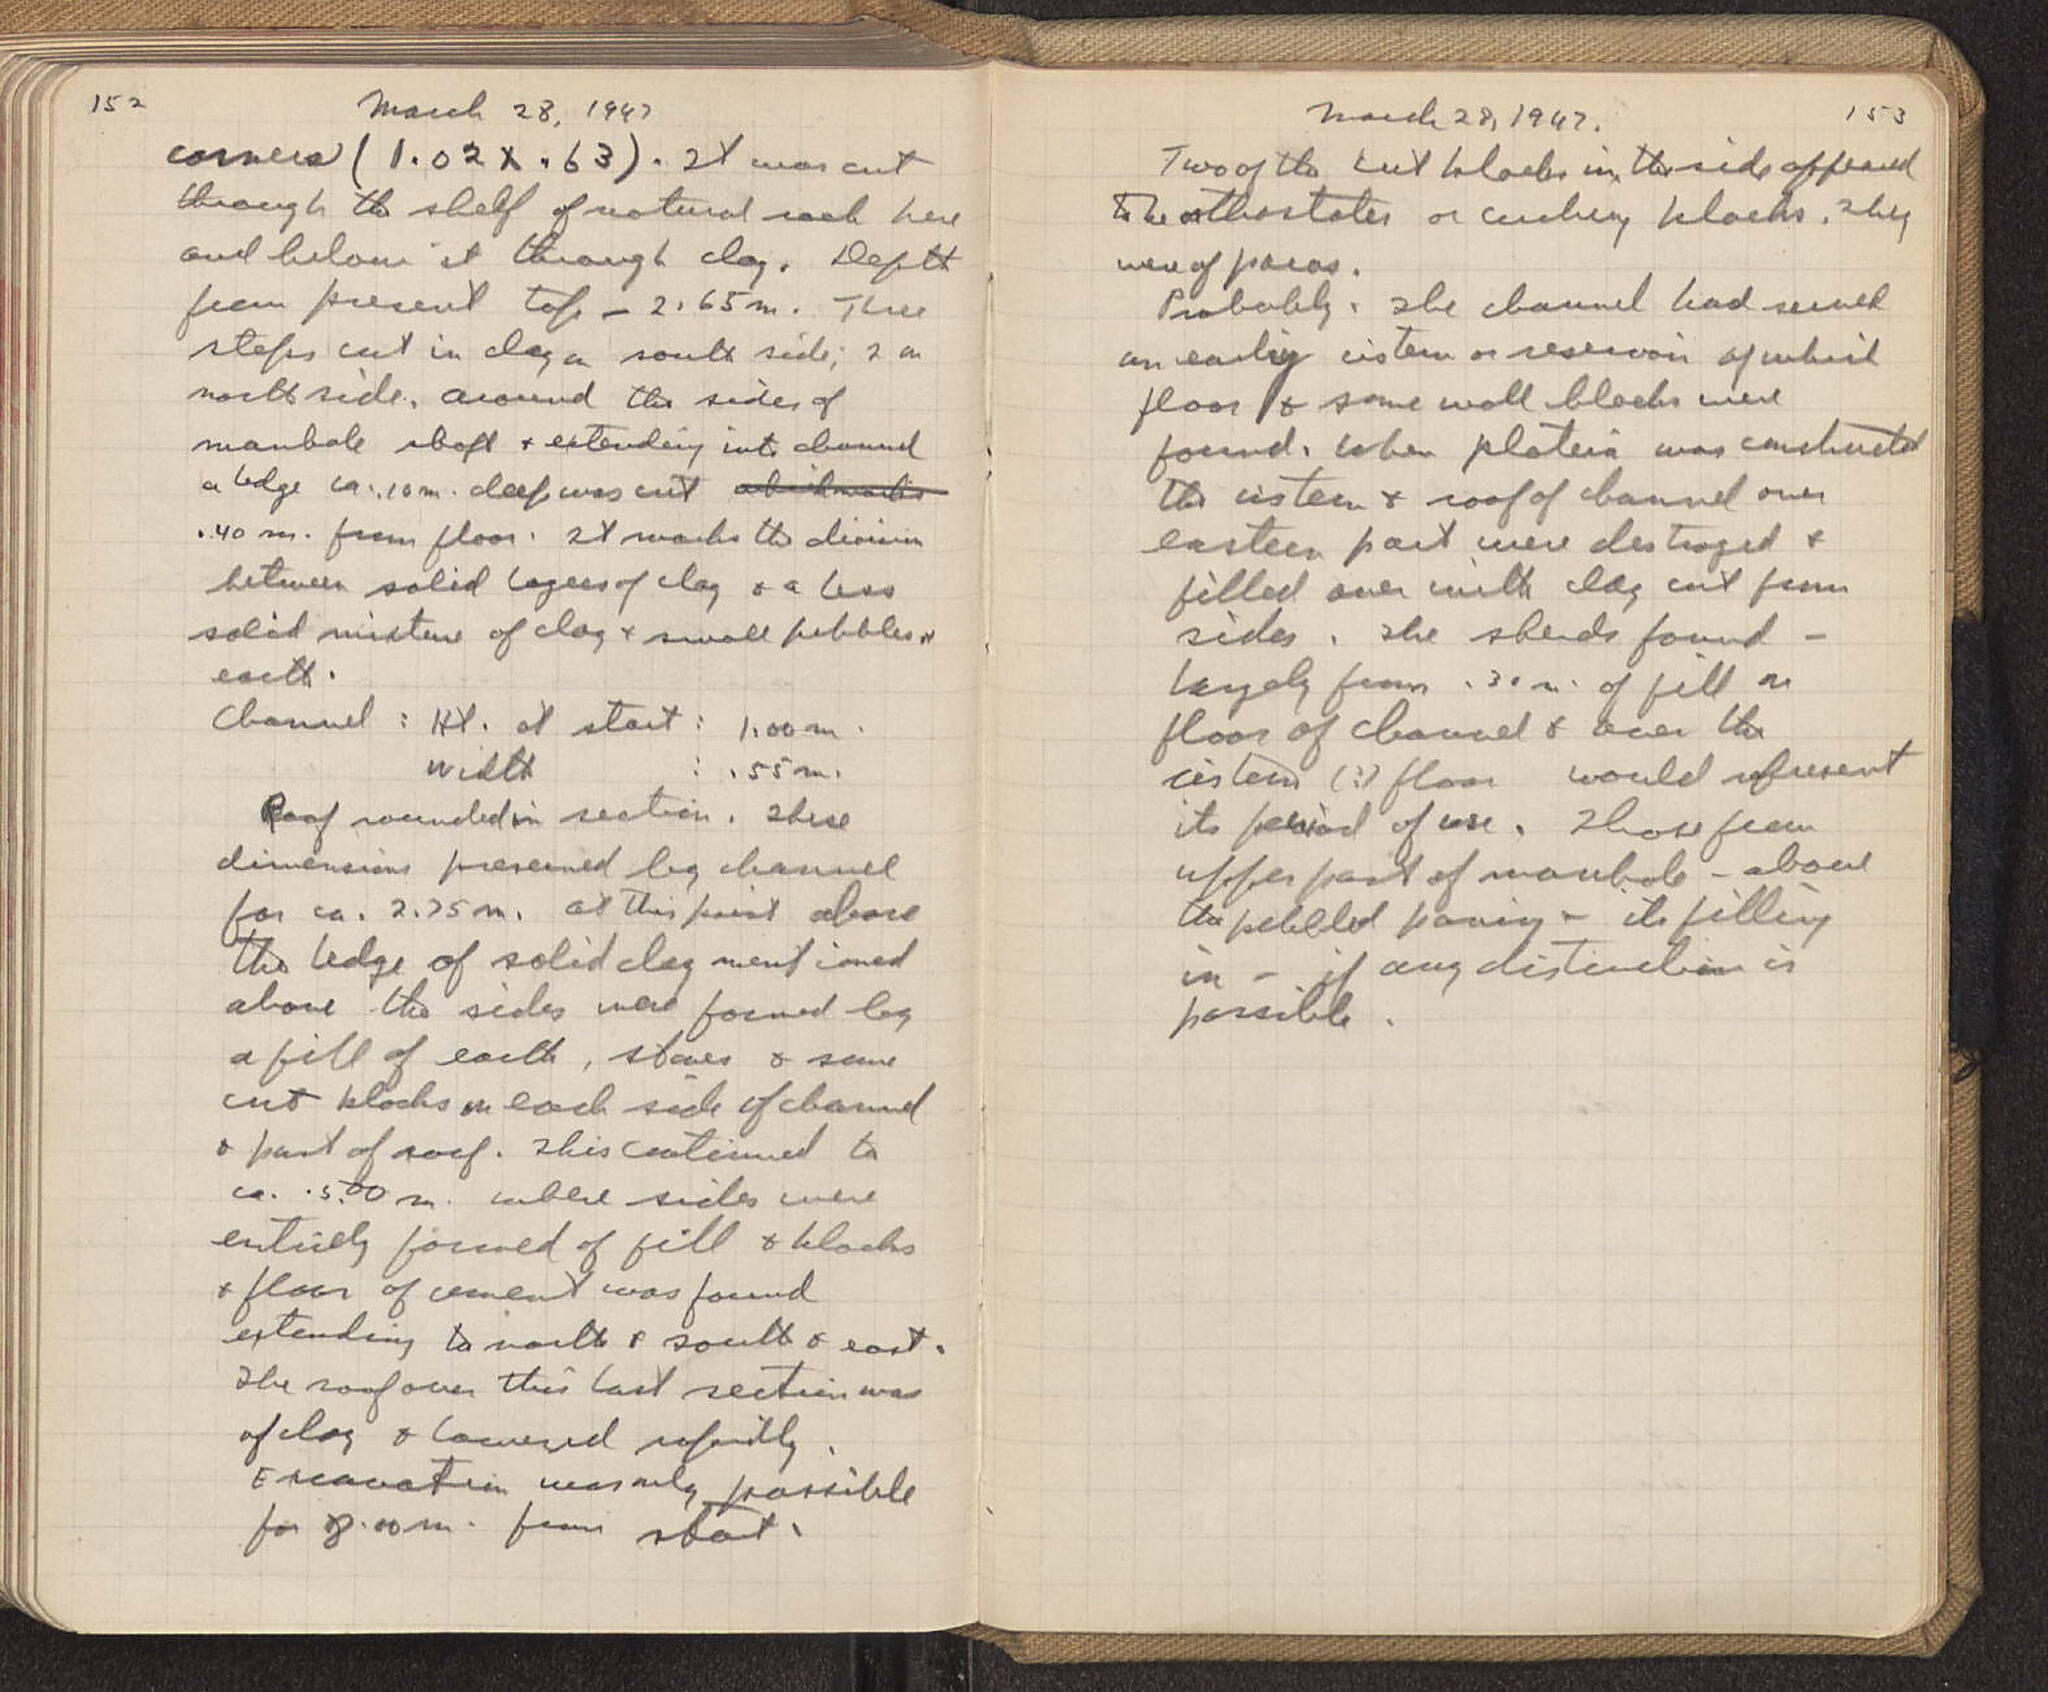 152
March 28, 1947
corners (1.02 X .63). It was cut
through the shelf of natural rock here
and below it through clay. Depth
from present top - 2.65 m. Three
steps cut in clay on south side; 2 on
north side. Around the sides of
manhole shaft + extending into channel
a ledge ca. .10 m. deep was cut which marks
.40 m. from floor. It marks the division
between solid layers of clay & a less
solid mixture of clay + small pebbles +
earth.
Channel : Ht. at start : 1.00 m.
Width : .55 m.
Roof rounded in section. These
dimensions preserved by channel
for ca. 2.75 m. At this point above
the ledge of solid clay mentioned
above the sides were formed by
a fill of earth, stones & some
cut blocks on each side of channel
& part of roof. This continued to
ca. 5.00 m. where sides were
entirely formed of fill & blocks
& floor of cement was found
extending to north & south & east.
The roof over this last section was
of clay & lowered rapidly.
Excavation was only possible
for 8.00 m. from start.
March 28, 1947.
153
Two of the cut blocks in the side appeared
to be orthostates or curbing blocks. They
were of poros.
Probably. The channel had served
an earlier cistern or reservoir of which
floor & some wall blocks were
found. When plateia was constructed
the cistern & roof of channel over
eastern part were destroyed &
filled over with clay cut from
sides. The sherds found -
largely from .30 m. of fill on
floor of channel & over the
cistern (?) floor would represent
its period of use. Those from
upper part of manhole - above
the pebbled paving - its filling
in - if any distinction is
possible.